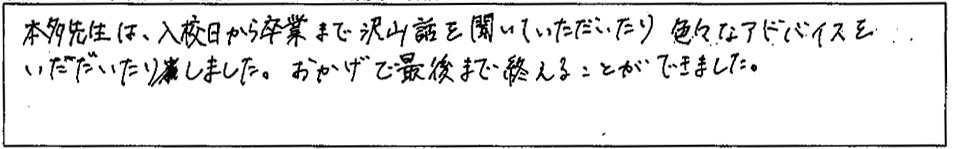 本多先生は、入校日から卒業まで沢山話を聞いていただいたり 色々なアドバイスを
いただいたりしました。おかげで最後まで終えることができました。